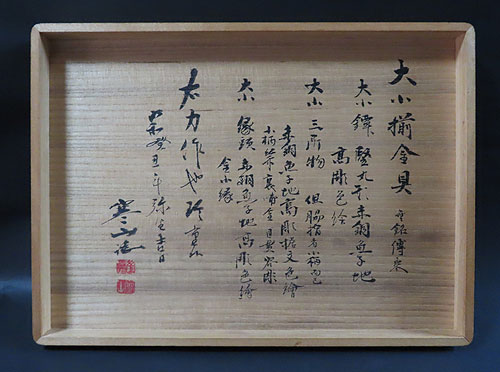 大小揃金具
無銘傳来
大小鐔 竪丸形赤銅魚子地
高彫色絵
大小 三所物 但脇指者小柄而已
赤銅魚子地高彫据文色繪
小柄笄裏
大小 縁頭 赤銅魚子地高彫色繪
金小縁
右力作也 珍重
昭和癸丑年弥生吉日
寒山誌